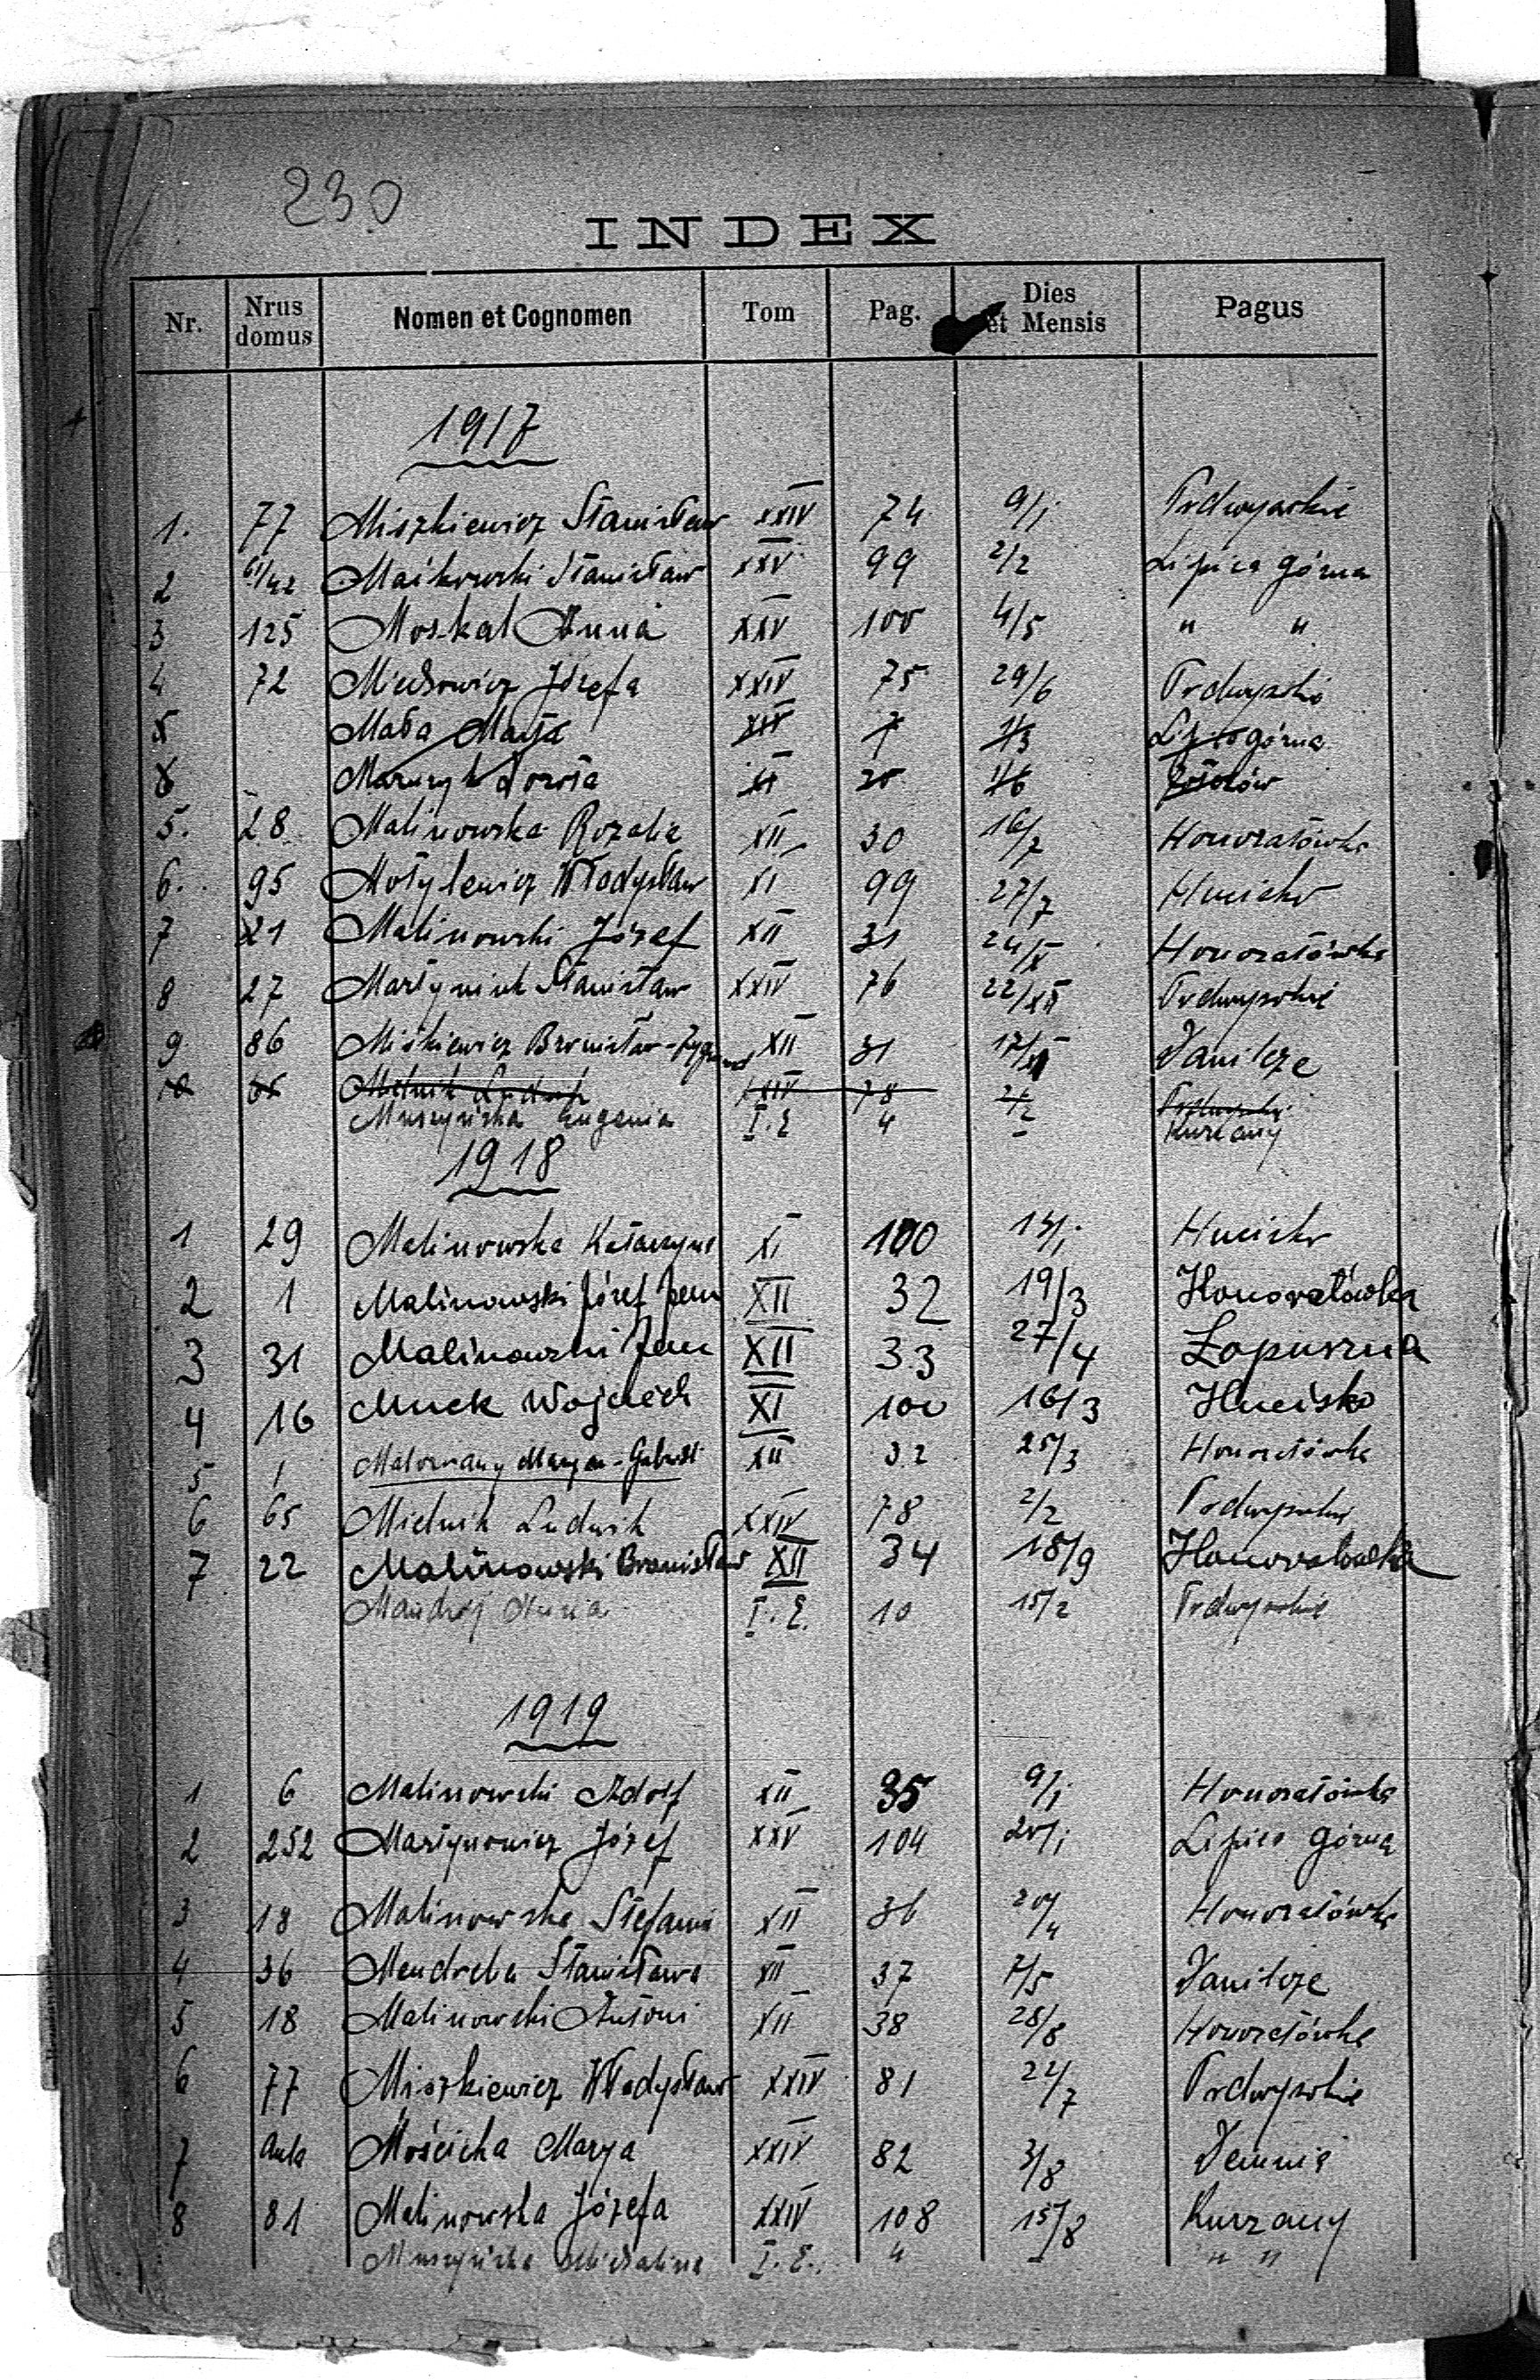 230
INDEX
Nr. Nrus domus Nomen et Cognomen Tom Pag. Dies et Mensis Pagus
1917
1. 77 Miszkiewicz Stanisław XXIV 74 9/1 Podwysokie
2 61/42 Maśkowski Stanisław XXV 99 2/2 Lipica górna
3 125 Moskal Anna XXV 100 4/5 " "
4 72 Józefa XXIV 75 29/6 Podwysokie
5 Mała Marja XIV 7 1/3 Lipica górna
6 XI 20 1/6
5. 28 Malinowska Rozalia XII 30 16/7 Honoratówka
6. 95 Motylewicz Władysław XI 99 27/7 Hucisko
7 21 Malinowski Józef XII 31 24/X Honoratówka
8 27 Martyniuk Stanisław XXIV 76 22/XII Podwysokie
9 86 Miśkiewicz Bronisław-Zygmunt XII 31 Danilcze
10 65 Mielnik Ludwik XXIV 78 2/2 Podwysokie
Muszyńska Eugenia I.E 4 – Kurzany
1918
1 29 Malinowska Katarzyna XI 100 Hucisko
2 1 Malinowski Józef Jan XII 32 19/3 Honoratówka
3 31 Malinowski Jan XII 33 27/4 Łopuszna
4 16 Muck Wojciech XI 100 16/3 Hucisko
5 1 Maryan-Gabriel XII 32 25/3 Honoratówka
6 65 Mielnik Ludwik XXIV 78 2/2 Podwysokie
7 22 Malinowski Bronisław XII 34 18/9 Honoratówka
Anna I.E. 10 15/2 Podwysokie
1919
1 6 Malinowski Adolf XII 35 9/1 Honoratówka
2 252 Martynowicz Józef XXV 104 20/1 Lipica Górna
3 18 Malinowska Stefania XII 36 20/4 Honoratówka
4 36 Mendreba Stanisława XII 37 7/5 Danilcze
5 18 Malinowski Antoni XII 38 28/8 Honoratówka
6 77 Miszkiewicz Władysław XXIV 81 22/7 Podwysokie
7 Aula Mościcka Marya XXIV 82 3/8 Demnia
8 81 Malinowska Józefa XXIV 108 15/8 Kurzany
Muszyńska Michalina I.E. 4 – " "